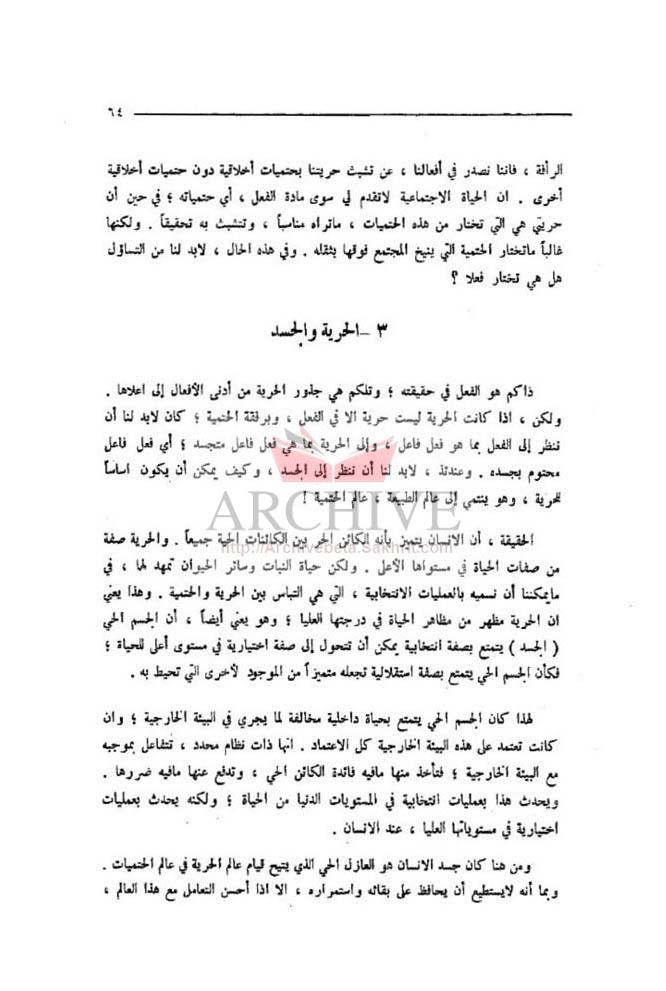 ٦٤
الرأفة ، فاننا نصدر في أفعالنا ، عن تشبث حريتنا بحتميات أخلاقية دون حتميات أخلاقية
أخرى . ان الحياة الاجتماعية لاتقدم لي سوى مادة الفعل ، أي حتمياته ؛ في حين أن
حريتي هي التي تختار من هذه الحتميات ، ماتراه مناسباً ، وتتشبث به تحقيقاً . ولكنها
غالباً ماتختار الحتمية التي ينيخ المجتمع فوقها بثقله . وفي هذه الحال ، لابد لنا من التساؤل
هل هي تختار فعلا ؟
٣ – الحرية والجسد
ذاكم هو الفعل في حقيقته ؛ وتلكم هي جذور الحرية من أدنى الأفعال إلى اعلاها .
ولكن ، اذا كانت الحرية ليست حرية الا في الفعل ، وبرفقة الحتمية ؛ كان لابد لنا أن
ننظر إلى الفعل بما هو فعل فاعل ، وإلى الحرية بما هي فعل فاعل متجسد ؛ أي فعل فاعل
محتوم بجسده . وعندئذ ، لابد لنا أن ننظر إلى الجسد ، وكيف يمكن أن يكون اساساً
للحرية ، وهو ينتمي إلى عالم الطبيعة ، عالم الحتمية !
ARCHIVE
http://Archivebeta.Sakhrit.com
الحقيقة ، أن الانسان يتميز بأنه الكائن الحر بين الكائنات الحية جميعاً . والحرية صفة
من صفات الحياة في مستواها الأعلى . ولكن حياة النبات وسائر الحيوان تمهد لها ، في
مايمكننا أن نسميه بالعمليات الانتخابية ، التي هي التباس بين الحرية والحتمية . وهذا يعني
ان الحرية مظهر من مظاهر الحياة في درجتها العليا ؛ وهو يعني أيضاً ، أن الجسم الحي
( الجسد ) يتمتع بصفة انتخابية يمكن أن تتحول إلى صفة اختيارية في مستوى أعلى للحياة ؛
فكأن الجسم الحي يتمتع بصفة استقلالية تجعله متميزاً من الموجود لأخرى التي تحيط به .
لهذا كان الجسم الحي يتمتع بحياة داخلية مخالفة لما يجري في البيئة الخارجية ؛ وان
كانت تعتمد على هذه البيئة الخارجية كل الاعتماد . انها ذات نظام محدد ، تتفاعل بموجبه
مع البيئة الخارجية ؛ فتأخذ منها مافيه فائدة الكائن الحي ، وتدفع عنها مافيه ضررها .
ويحدث هذا بعمليات انتخابية في المستويات الدنيا من الحياة ؛ ولكنه يحدث بعمليات
اختيارية في مستوياتها العليا ، عند الانسان .
ومن هنا كان جسد الانسان هو العازل الحي الذي يتيح قيام عالم الحرية في عالم الحتميات .
وبما أنه لايستطيع أن يحافظ على بقائه واستمراره ، الا اذا أحسن التعامل مع هذا العالم ،